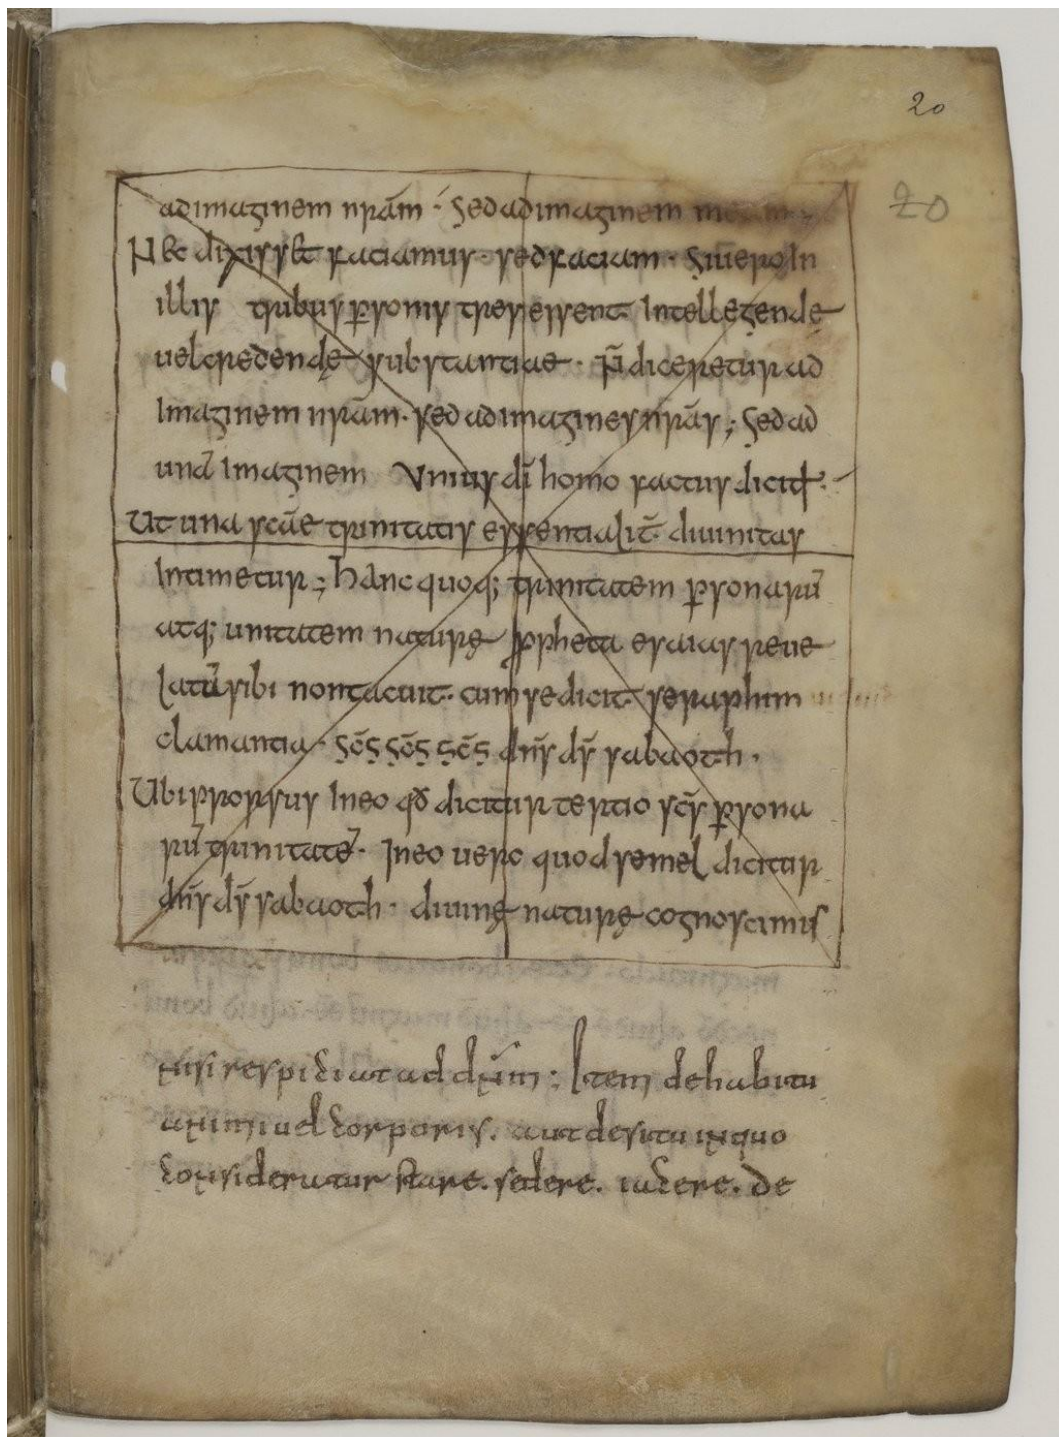 20
20
ad imaginem nr̄am · Sed ad imaginem
Nec dixisset faciamus · sed faciam · Si uero In
illis tribus ꝑsonis tres essent Intellegende
uel credendę substantiae · n̄ diceretur ad
Imaginem nr̄am · sed ad imagines nr̄as ; Sed ad
unā Imaginem Unius dī homo factus dicit᷒ ·
Ut una sc̄ae trinitatis essentialit̄ diuinitas
Intimetur ; hanc quoq; trinitatem ꝑsonarū
atq; unitatem naturę ꝓpheta esaias reue
latū sibi non tacuit · cum se dicit seraphim
clamantia · Sc̄s sc̄s sc̄s dn̄s ds̄ sabaoth ·
Ubi prorsus In eo qđ dicitur tertio sc̄s ꝑsona
rū trinitatē · In eo uero quod semel dicitur
dn̄s ds̄ sabaoth · diuinę naturę cognoscimus
nisi respiciat ad dn̄m ; Item de habitu
animi uel corporis . aut de situ in quo
consideratur stare . sedere . iacere . de